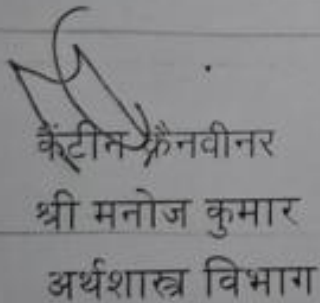 कैंटीन क्रैनवीनर
श्री मनोज कुमार
अर्थशास्त्र विभाग